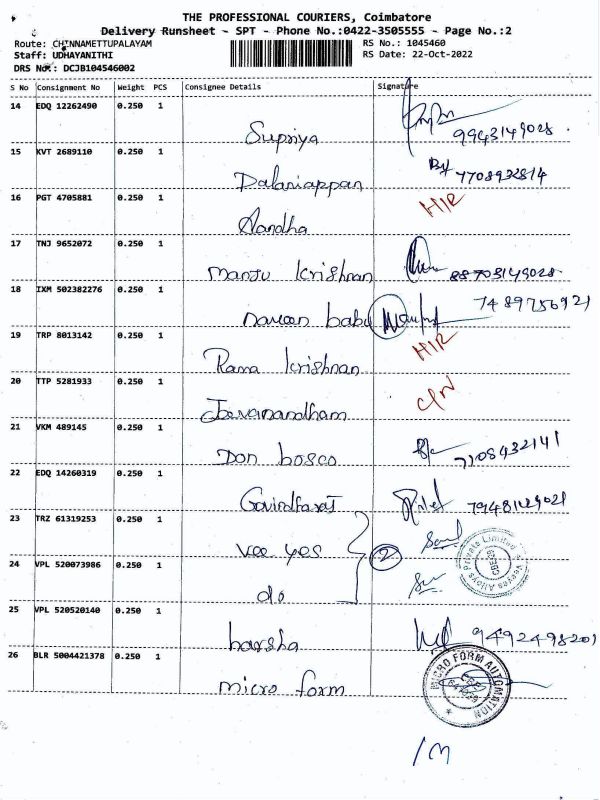 THE PROFESSIONAL COURIERS, Coimbatore
Delivery Runsheet - SPT - Phone No.:0422-3505555 - Page No.:2
Route: CHINNAMETTUPALAYAM RS No.: 1045460
Staff: UDHAYANITHI RS Date: 22-Oct-2022
DRS No.: DCJB104546002
S No Consignment No Weight PCS Consignee Details Signature
14 EDQ 12262490 0.250 1
Supriya 9943149028
15 KVT 2689110 0.250 1
Palaniappan 7708932814
16 PGT 4705881 0.250 1 H/R
Nandha
17 TNJ 9652072 0.250 1
Manju Krishnan 88703149028
18 IXM 502382276 0.250 1
naveen babu 7489756921
19 TRP 8013142 0.250 1 H/R
Rama Krishnan
20 TTP 5281933 0.250 1
Jeevanandham
21 VKM 489145 0.250 1
Don bosco 7108432141
22 EDQ 14260319 0.250 1
Govindharaj 79481429021
23 TRZ 61319253 0.250 1
vee yes 2
24 VPL 520073986 0.250 1
do
25 VPL 520520140 0.250 1
harsha 9492498201
26 BLR 5004421378 0.250 1
micro form MICRO FORM AUTOMATION